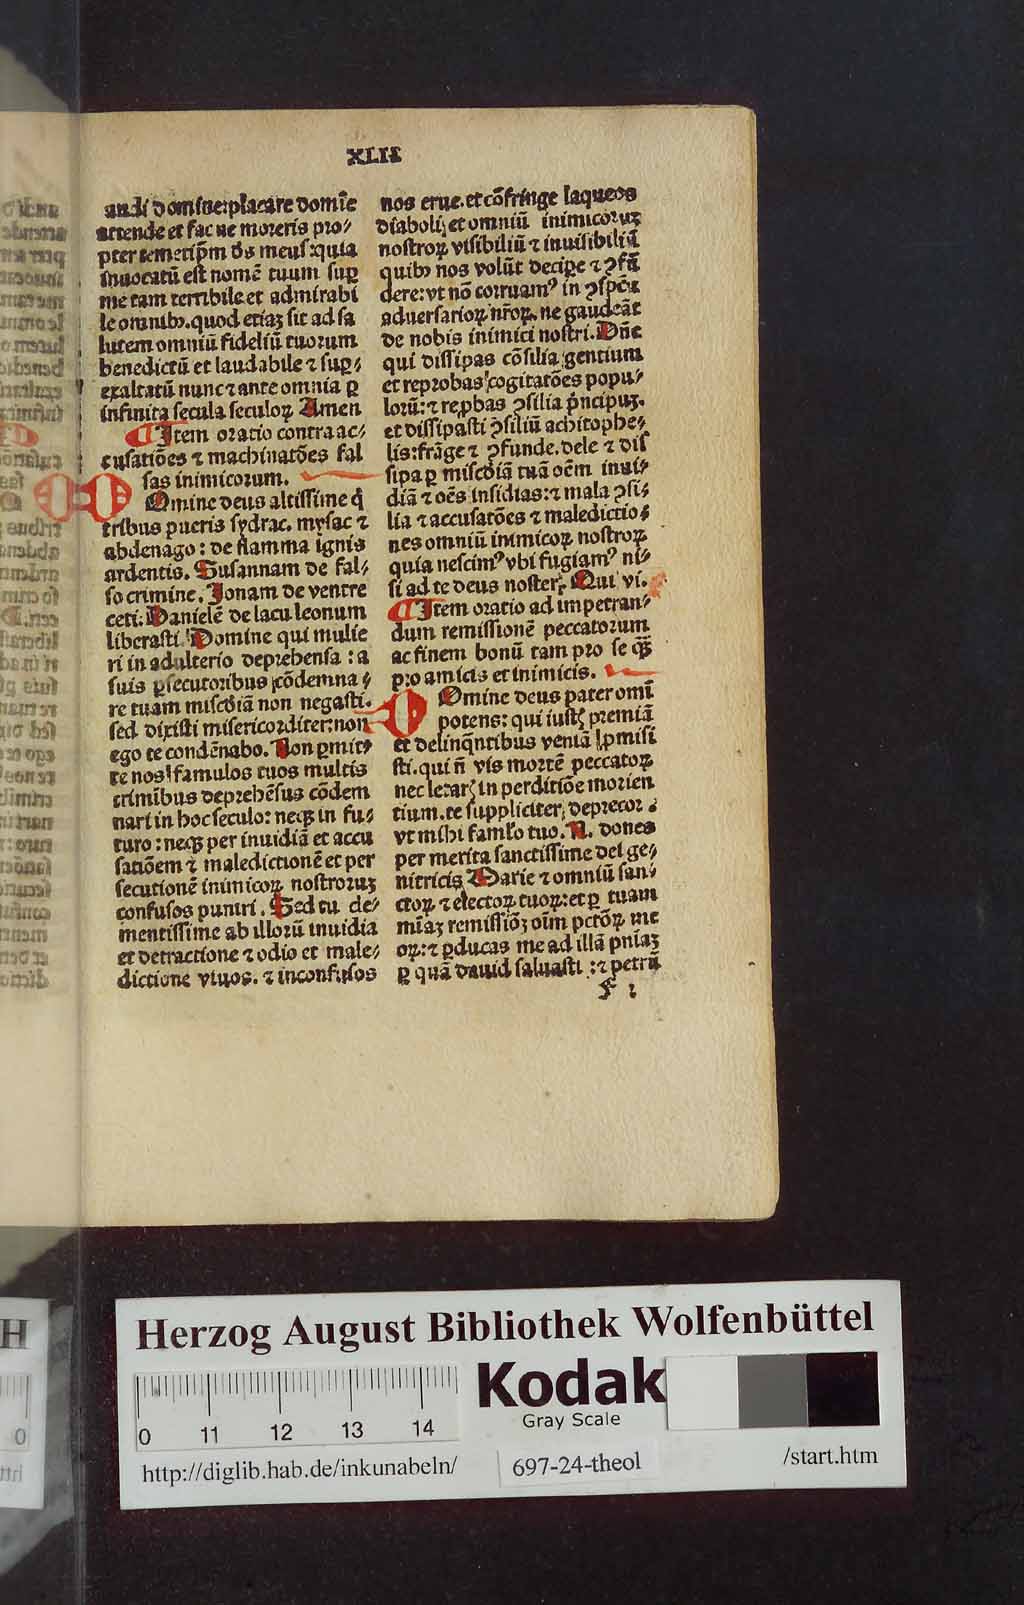 XLII
audi domine: placare domīe
attende et fac ne moreris pro⸗
pter temetip̄m d̄s meus: quia
inuocatū est nomē tuum suꝑ
me tam terribile et admirabi
le omnibꝰ. quod etiaꝫ sit ad sa
lutem omniū fideliū tuorum
benedictū et laudabile ⁊ suꝑ⸗
exaltatū nunc ⁊ ante omnia ꝑ
infinita secula seculoꝝ Amen
¶ Item oratio contra ac⸗
cusatiōes ⁊ machinatōes fal
sas inimicorum.
DOmine deus altissime q̄
tribus pueris sydrac. mysac ⁊
abdenago: de flamma ignis
ardentis. Susannam de fal⸗
so crimine. Jonam de ventre
ceti. Danielē de lacu leonum
liberasti. Domine qui mulie
ri in adulterio deprehensa: a
suis ꝑsecutoribus cōdemna⸗
re tuam miscd̄iā non negasti.
sed dixisti misericorditer: non
ego te condēnabo. Non ꝑmit⸗
te nos famulos tuos multis
crimībus deprehēsus cōdem
nari in hoc seculo: neqꝫ in fu⸗
turo: neqꝫ per inuidiā et accu
satiōem ⁊ maledictionē et per
secutionē inimicoꝝ nostroruꝫ
confusos puniri. Sed tu cle⸗
mentissime ab illorū inuidia
et detractione ⁊ odio et male⸗
dictione viuos. ⁊ inconfusos
nos erue. et cōfringe laqueos
diaboli; et omniū inimicoruꝫ
nostroꝝ visibiliū ⁊ inuisibiliū
quibꝰ nos volūt deciꝑe ⁊ ꝯfū
dere: vt nō corruamꝰ in ꝯspc̄tu
aduersarioꝝ nr̄oꝝ. ne gaudeāt
de nobis inimici nostri. Dn̄e
qui dissipas cōsilia gentium
et reprobas cogitatōes popu⸗
lorū: ⁊ reꝓbas ꝯsilia p̄ncipuꝫ.
et dissipasti ꝯsiliū achitophe⸗
lis: frāge ⁊ ꝯfunde. dele ⁊ dis
sipa ꝑ miscd̄iā tuā oēm inui⸗
diā ⁊ oēs insidias: ⁊ mala ꝯsi⸗
lia ⁊ accusatōes ⁊ maledictio⸗
nes omniū inimicoꝝ nostroꝝ
quia nescimꝰ vbi fugiamꝰ ni⸗
si ad te deus noster. Qui vi.
¶ Item oratio ad impetran⸗
dum remissionē peccatorum
ac finem bonū tam pro se qꝫ̄
pro amicis et inimicis.
DOmine deus pater omī
potens: qui iustꝭ premiā
et delinq̄ntibus veniā ꝓmisi
sti. qui n̄ vis mortē peccatoꝝ
nec letarꝭ in perditiōe morien
tium. te suppliciter deprecor
vt mihi famlo tuo. N. dones
per merita sanctissime dei ge⸗
nitricis Marie ⁊ omniū san⸗
ctoꝝ ⁊ electoꝝ tuoꝝ: et ꝑ tuam
mīaꝫ remissiōꝫ oīm pctōꝝ me
oꝝ: ⁊ ꝑducas me ad illā pn̄iaꝫ
ꝑ quā dauid saluasti: ⁊ petrū
F 1
Herzog August Bibliothek Wolfenbüttel
Kodak
Gray Scale
0 11 12 13 14
http://diglib.hab.de/inkunabeln/ 697-24-theol /start.htm